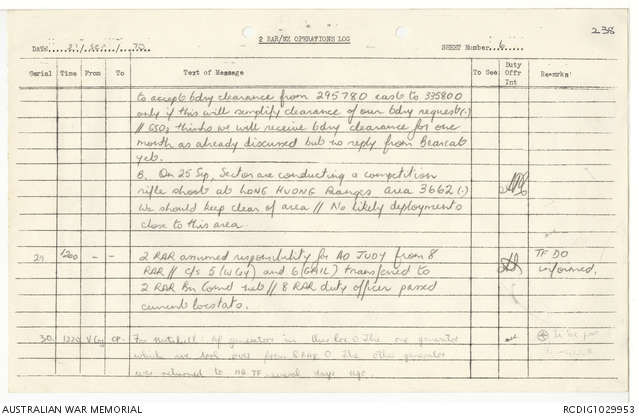 238
2 RAR/NZ OPERATIONS LOG
DATE 21/Sep/70
SHEET Number 6
Serial Time From To Text of Message To See Duty Offr Int Remarks
to accept bdry clearance from 295780 east to 335800
only if this will simplify clearance of our bdry request (.)
// GSO2 thinks we will receive bdry clearance for one
month as already discussed but no reply from Bearcat
yet.
B. On 25 Sep, Sector are conducting a competition
rifle shoot at LONG HUONG Ranges area 3662 (.)
We should keep clear of area // No likely deployments
close to this area
1200 - - 2 RAR assumed responsibility for AO JUDY from 8 TF DO
RAR // c/s 5 (W Coy) and 6 (GAIL) transferred to informed.
2 RAR Bn Comd net // 8 RAR duty officer passed
current locstats.
30 1220 V Coy CP
generator in this loc The one generator
which we took over from 8 RAR The other generator
was returned to HQ TF days ago.
AUSTRALIAN WAR MEMORIAL
RCDIG1029953